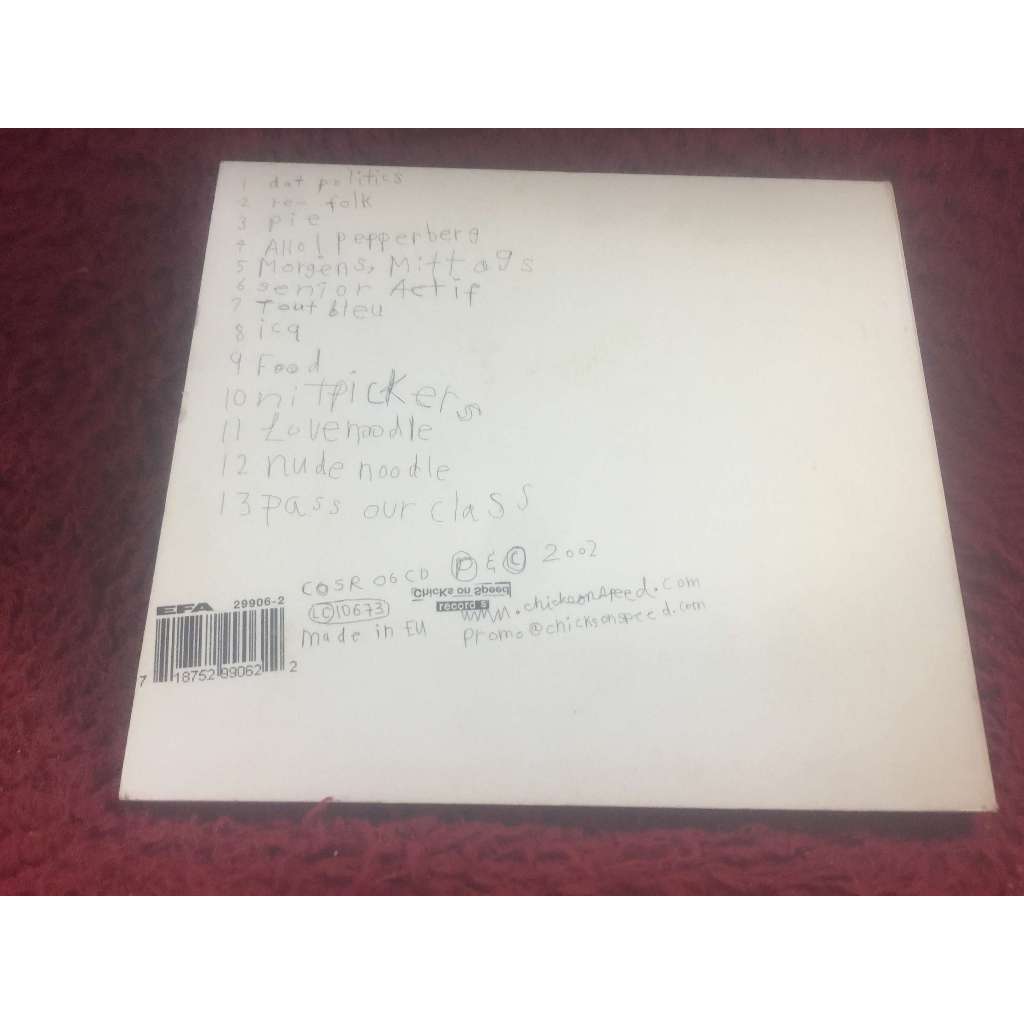 1 dat politics
2 re-folk
3 pie
4 Allo! pepperberg
5 Morgens, Mittags
6 senior Actif
7 Tout bleu
8 icq
9 Food
10 nitpickers
11 Lovenoodle
12 nude noodle
13 pass our class
COSR 06CD P & C 2002
LC 10673
Chicks on Speed
records
www.chicksonspeed.com
made in EU
promo@chicksonspeed.com
EFA 29906-2
7 18752 99062 2